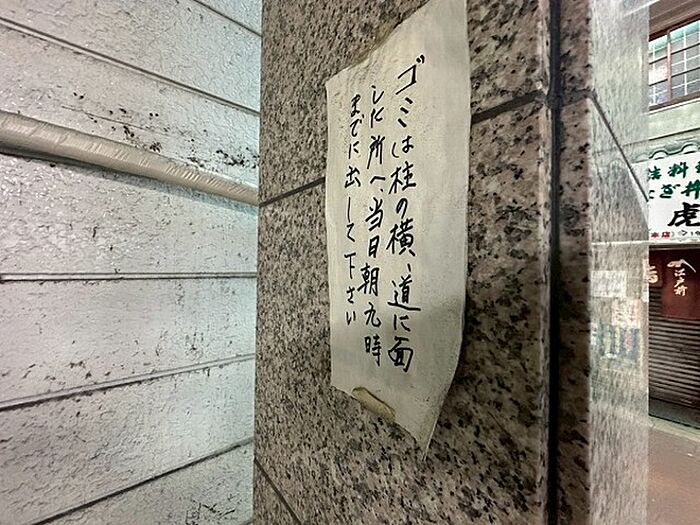 ゴミは柱の横、道に面
した所へ、当日朝九時
までに出して下さい
料
虎
江戸前